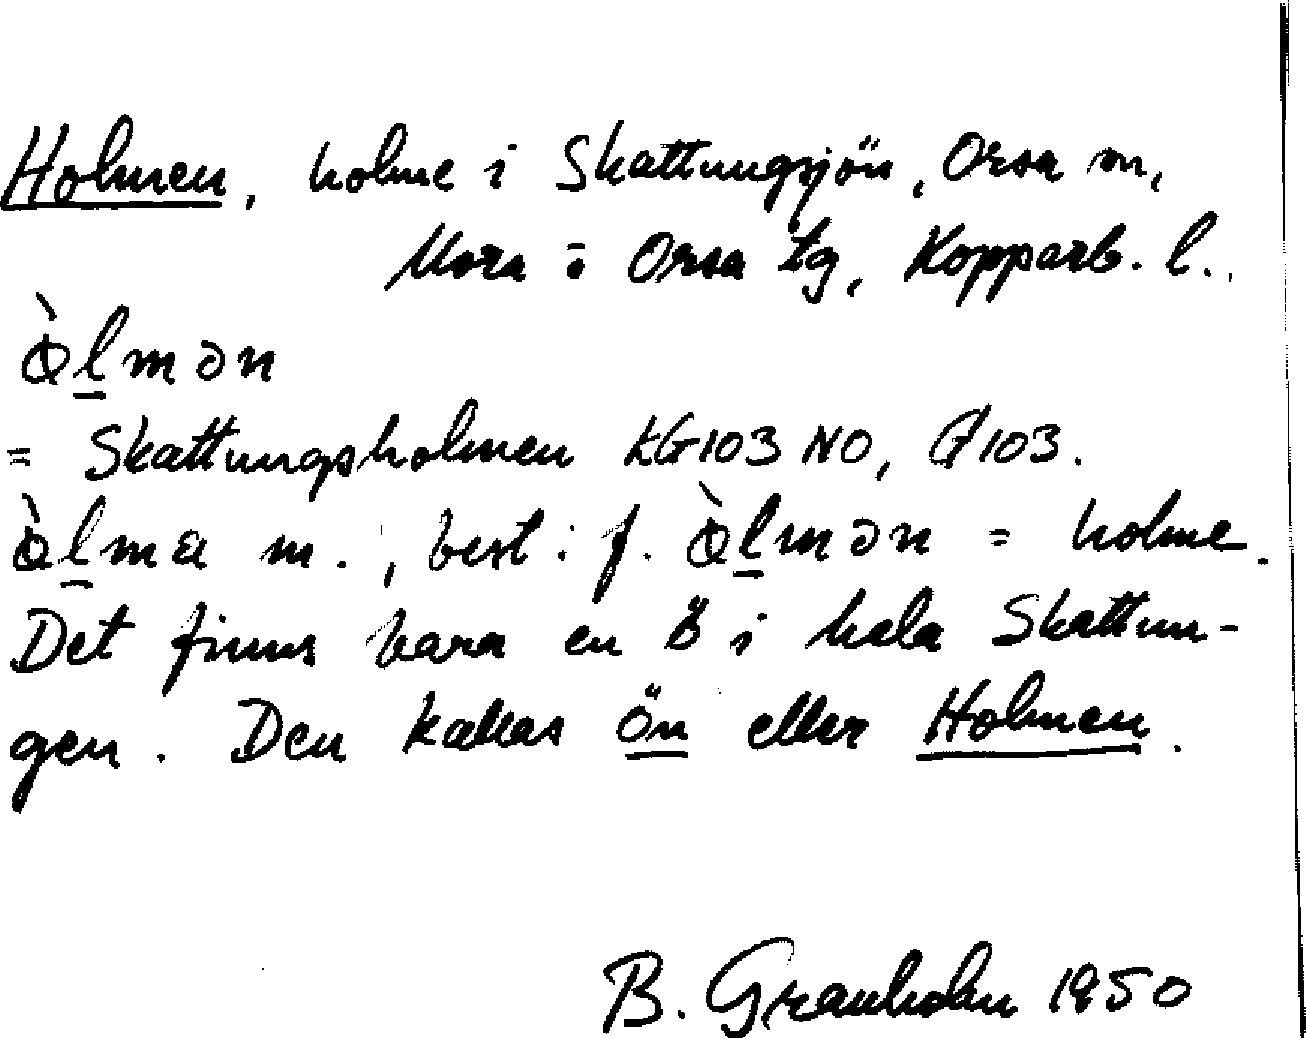 Holmen, holme i Skattungsjön, Orsa sn,
Mora o Orsa tg, Kopparb. l.
ò̱lmən
= Skattungsholmen KG103 NO, G103.
ò̱lma m., best. f. ò̱lmən = holme.
Det finns bara en ö i hela Skattun-
gen. Den kallas Ön eller Holmen.
B. Granholm 1950